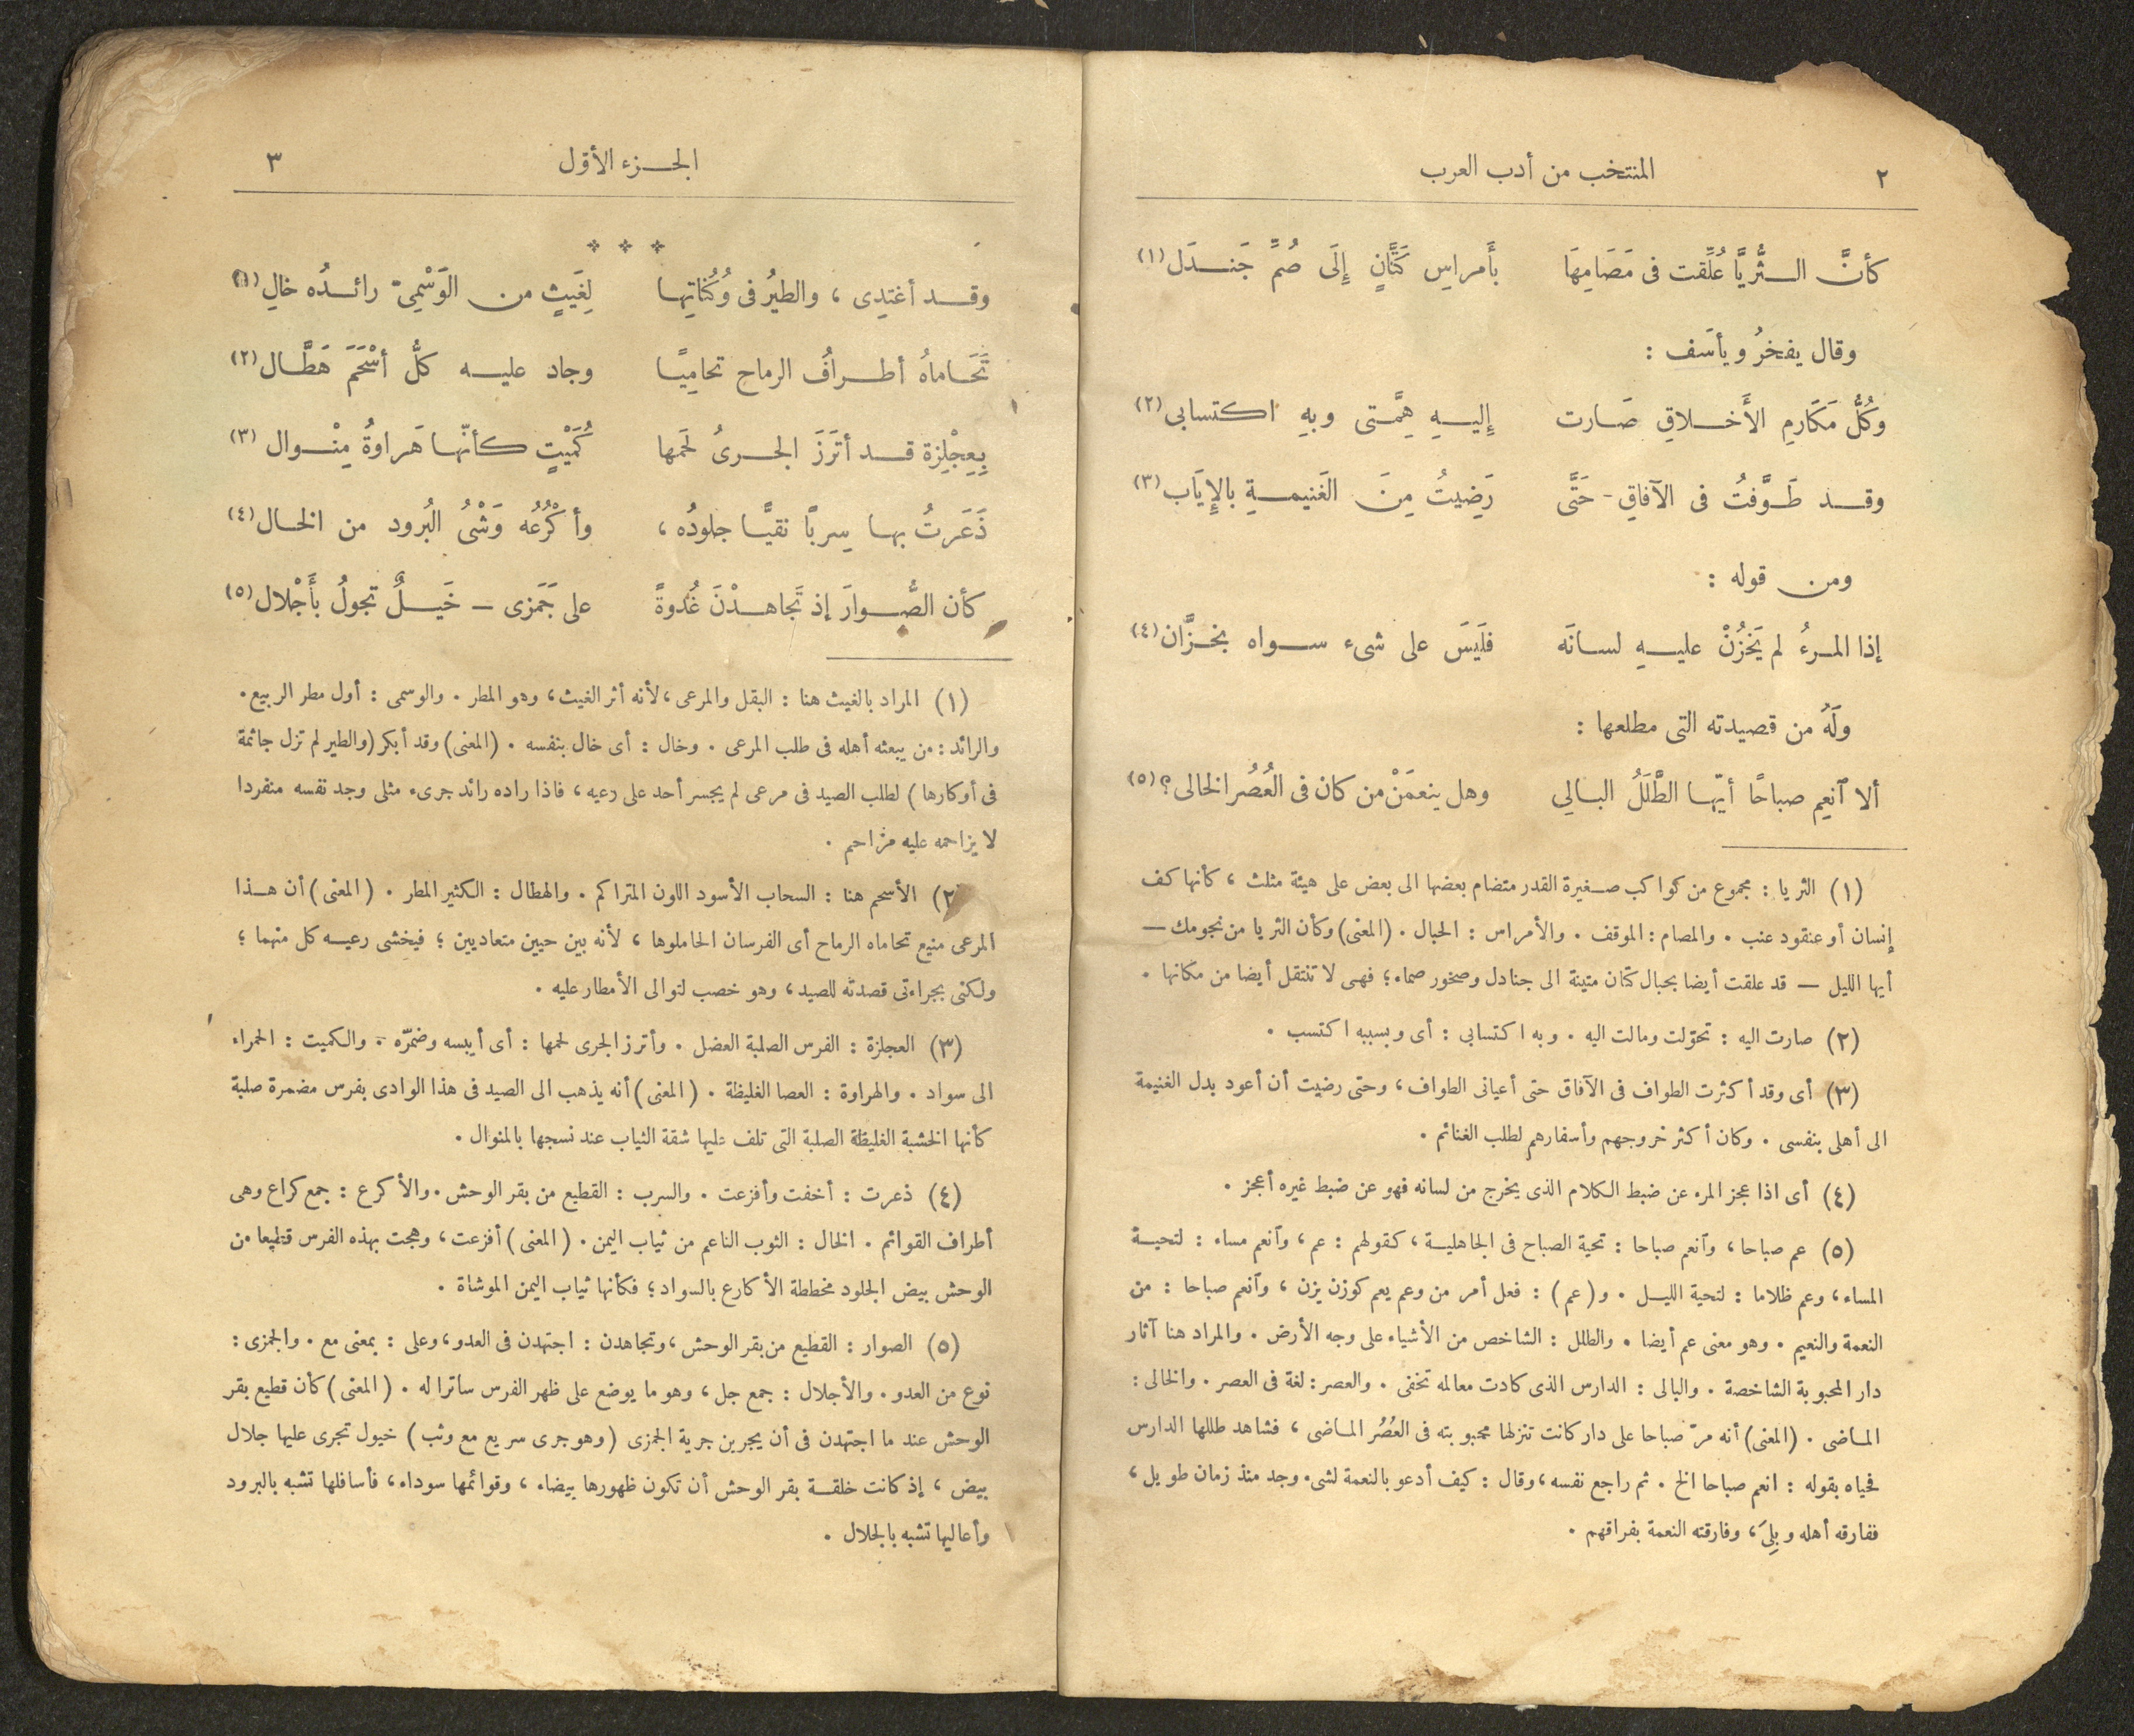 ٢
المنتخب من أدب العرب
كأنَّ الثُّريَّا عُلِّقت فى مَصَامِهَا بأَمراسِ كَتَّانٍ إِلَى صُمِّ جَندَل (١)
وقال يفخرُ ويأسَف :
وكُلُّ مَكَارِمِ الأَخلاقِ صَارت إِليهِ هِمَّتى وبهِ اكتسابى (٢)
وقد طَوَّفتُ فى الآفاقِ - حَتَّى رَضِيتُ مِنَ الغَنيمةِ بالإِيَاب (٣)
ومن قوله :
إذا المرءُ لم يَخزُنْ عليهِ لسانَه فلَيسَ على شىء سواه بخزَّان (٤)
ولَهُ من قصيدته التى مطلعها :
ألا ٱنعِم صباحًا أيّها الطَّلَلُ البالِي وهل ينعمَنْ من كان فى العُصُر الخالى ؟ (٥)
(١) الثريا : مجموع من كواكب صغيرة القدر متضام بعضها الى بعض على هيئة مثلث ، كأنها كف
إنسان أو عنقود عنب . والمصام : الموقف . والأمراس : الحبال . (المعنى) وكأن الثريا من نجومك —
أيها الليل — قد علقت أيضا بحبال كتان متينة الى جنادل وصخور صماء ؛ فهى لا تنتقل أيضا من مكانها .
(٢) صارت اليه : تحوّلت ومالت اليه . وبه اكتسابى : أى وبسببه اكتسب .
(٣) أى وقد أكثرت الطواف فى الآفاق حتى أعيانى الطواف ، وحتى رضيت أن أعود بدل الغنيمة
الى أهلى بنفسى . وكان أكثر خروجهم وأسفارهم لطلب الغنائم .
(٤) أى اذا عجز المرء عن ضبط الكلام الذى يخرج من لسانه فهو عن ضبط غيره أعجز .
(٥) عم صباحا ، وٱنعم صباحا : تحية الصباح فى الجاهلية ، كقولهم : عم ، وٱنعم مساء : لتحية
المساء ، وعم ظلاما : لتحية الليل . و (عم) : فعل أمر من وعم يعم كوزن يزن ، وٱنعم صباحا : من
النعمة والنعيم . وهو معنى عم أيضا . والطلل : الشاخص من الأشياء على وجه الأرض . والمراد هنا آثار
دار المحبوبة الشاخصة . والبالى : الدارس الذى كادت معالمه تختفى . والعصر : لغة فى العصر . والخالى :
الماضى . (المعنى) أنه مرّ صباحا على دار كانت تنزلها محبوبته فى العُصُر الماضى ، فشاهد طللها الدارس
فحياه بقوله : انعم صباحا الخ . ثم راجع نفسه ، وقال : كيف أدعو بالنعمة لشىء وجد منذ زمان طويل ،
ففارقه أهله وبِلىَ ، وفارقته النعمة بفراقهم .
الجزء الأوّل
٣
وقد أغتدِى ، والطيرُ فى وُكُناتِها لِغَيثٍ من الوَسْمِىّ رائدُه خالِ (١)
تَحَاماهُ أطرافُ الرماحِ تحامِيًا وجاد عليه كلُّ أسْحَمَ هَطَّال (٢)
بِعِجْلِزة قد أترَزَ الجرىُ لحمَها كُمَيْتٍ كأنّها هَراوةُ مِنْوال (٣)
ذَعَرتُ بها سِربًا نقيًّا جلودُه ، وأكْرُعُه وَشْىُ البُرود من الخال (٤)
كأن الصُّوارَ إذ تَجاهدْنَ غُدوةً على جَمَزى — خَيلٌ تجولُ بأَجْلال (٥)
(١) المراد بالغيث هنا : البقل والمرعى ، لأنه أثر الغيث ، وهو المطر . والوسمى : أول مطر الربيع .
والرائد : من يبعثه أهله فى طلب المرعى . وخال : أى خال بنفسه . (المعنى) وقد أبكر (والطير لم تزل جاثمة
فى أوكارها) لطلب الصيد فى مرعى لم يجسر أحد على رعيه ، فاذا راده رائد جرىء مثلى وجد نفسه منفردا
لا يزاحمه عليه مزاحم .
(٢) الأسحم هنا : السحاب الأسود اللون المتراكم . والهطال : الكثير المطر . (المعنى) أن هذا
المرعى منيع تحاماه الرماح أى الفرسان الحاملوها ، لأنه بين حيين متعاديين ؛ فيخشى رعيه كل منهما ؛
ولكنى بجراءتى قصدته للصيد ، وهو خصب لتوالى الأمطار عليه .
(٣) العجلزة : الفرس الصلبة العضل . وأترز الجرى لحمها : أى أيبسه وضمّره . والكميت : الحمراء
الى سواد . والهراوة : العصا الغليظة . (المعنى) أنه يذهب الى الصيد فى هذا الوادى بفرس مضمرة صلبة
كأنها الخشبة الغليظة الصلبة التى تلف عليها شقة الثياب عند نسجها بالمنوال .
(٤) ذعرت : أخفت وأفزعت . والسرب : القطيع من بقر الوحش . والأكرع : جمع كراع وهى
أطراف القوائم . الخال : الثوب الناعم من ثياب اليمن . (المعنى) أفزعت ، وهجت بهذه الفرس قطيعا من
الوحش بيض الجلود مخططة الأكارع بالسواد ؛ فكأنها ثياب اليمن الموشاة .
(٥) الصوار : القطيع من بقر الوحش ، وتجاهدن : اجتهدن فى العدو ، وعلى : بمعنى مع . والجمزى :
نوع من العدو . والأجلال : جمع جل ، وهو ما يوضع على ظهر الفرس ساترا له . (المعنى) كأن قطيع بقر
الوحش عند ما اجتهدن فى أن يجرين جرية الجمزى (وهو جرى سريع مع وثب) خيول تجرى عليها جلال
بيض ، إذ كانت خلقة بقر الوحش أن تكون ظهورها بيضاء ، وقوائمها سوداء ، فأسافلها تشبه بالبرود
وأعاليها تشبه بالجلال .